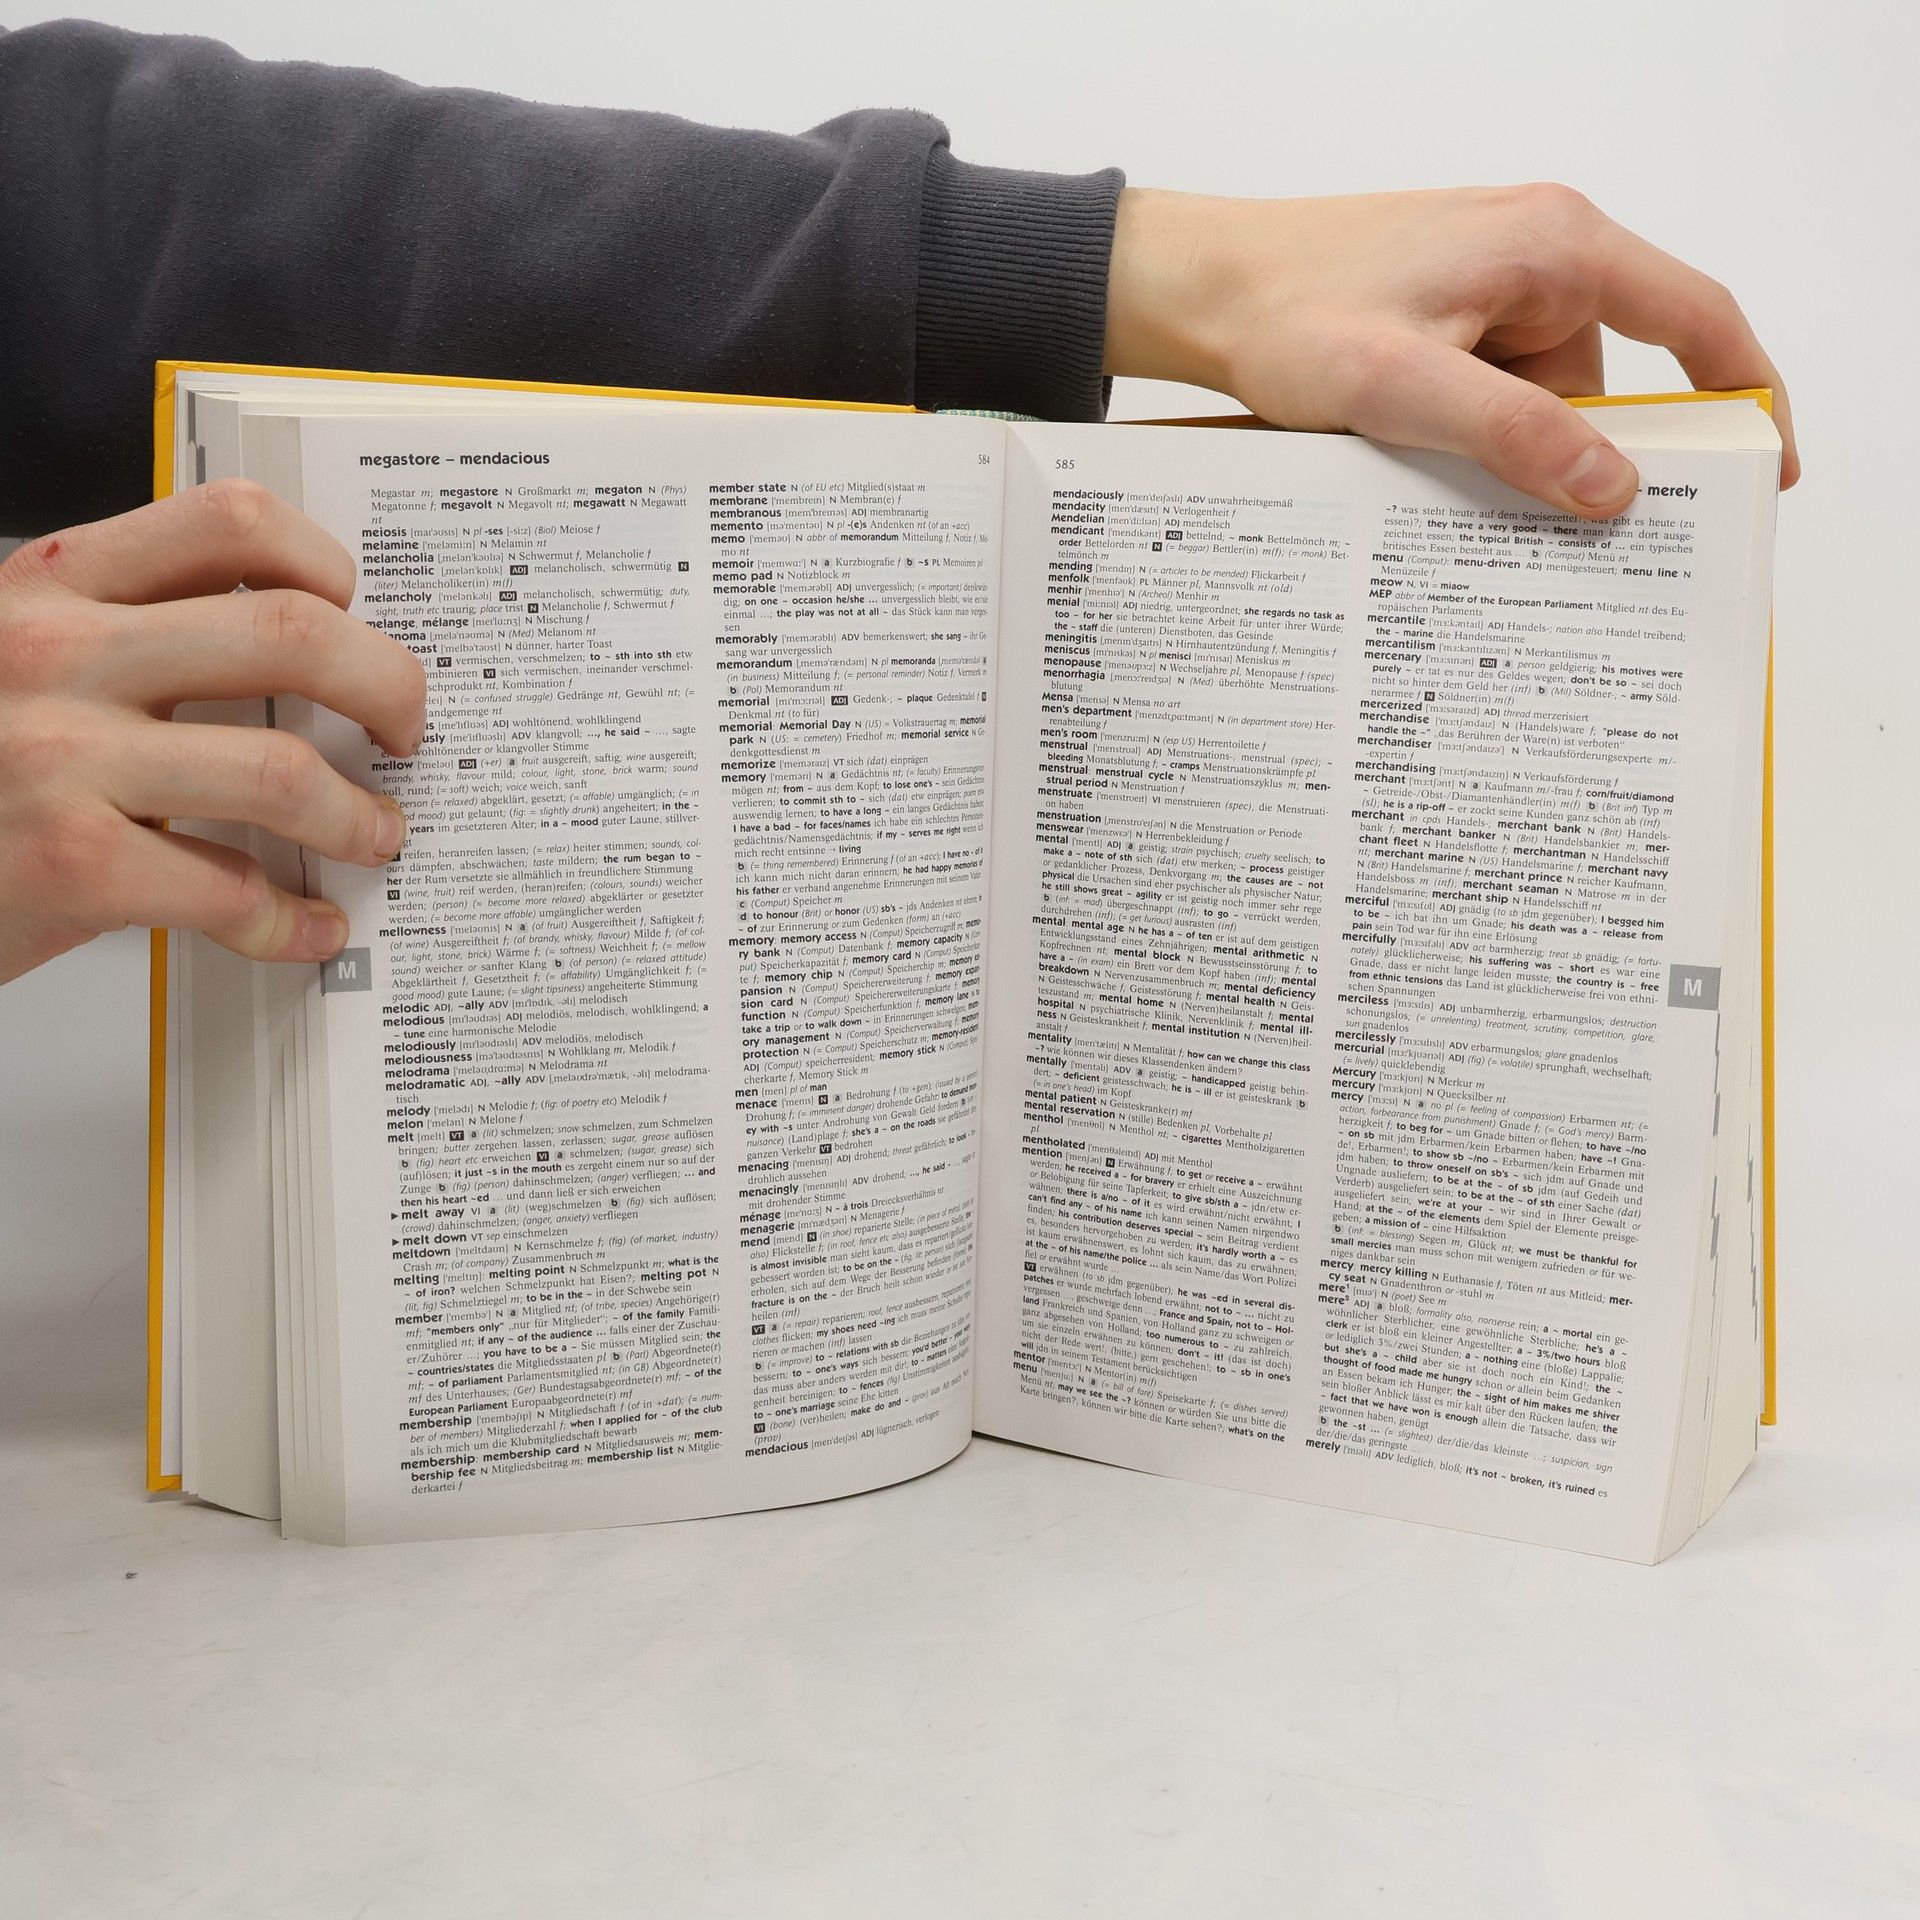 megastore – mendacious
584
Megastar m; megastore N Großmarkt m; megaton N (Phys)
Megatonne f; megavolt N Megavolt nt; megawatt N Megawatt
nt
meiosis N pl -ses (Biol) Meiose f
melamine N Melamin nt
melancholia N Schwermut f, Melancholie f
melancholic ADJ melancholisch, schwermütig N
(liter) Melancholiker(in) m(f)
melancholy ADJ melancholisch, schwermütig; duty,
sight, truth etc traurig; place trist N Melancholie f, Schwermut f
melange, mélange N Mischung f
N (Med) Melanom nt
N dünner, harter Toast
VT vermischen, verschmelzen; to ~ sth into sth etw
VI sich vermischen, ineinander verschmel-
nt, Kombination f
N (= confused struggle) Gedränge nt, Gewühl nt; (=
nt
ADJ wohltönend, wohlklingend
ADV klangvoll; ..., he said ~ ..., sagte
wohltönender or klangvoller Stimme
mellow ADJ (+er) a fruit ausgereift, saftig; wine ausgereift;
brandy, whisky, flavour mild; colour, light, stone, brick warm; sound
voll, rund; (= soft) weich; voice weich, sanft
person (= relaxed) abgeklärt, gesetzt; (= affable) umgänglich; (= in
mood) gut gelaunt; (fig: = slightly drunk) angeheitert; in the ~
years im gesetzteren Alter; in a ~ mood guter Laune, stillver-
reifen, heranreifen lassen; (= relax) heiter stimmen; sounds, col-
ours dämpfen, abschwächen; taste mildern; the rum began to ~
her der Rum versetzte sie allmählich in freundlichere Stimmung
VI (wine, fruit) reif werden, (heran)reifen; (colours, sounds) weicher
werden; (person) (= become more relaxed) abgeklärter or gesetzter
werden; (= become more affable) umgänglicher werden
mellowness N a (of fruit) Ausgereiftheit f, Saftigkeit f;
(of wine) Ausgereiftheit f; (of brandy, whisky, flavour) Milde f; (of col-
our, light, stone, brick) Wärme f; (= softness) Weichheit f; (= mellow
sound) weicher or sanfter Klang b (of person) (= relaxed attitude)
Abgeklärtheit f, Gesetztheit f; (= affability) Umgänglichkeit f; (=
good mood) gute Laune; (= slight tipsiness) angeheiterte Stimmung
M
melodic ADJ, ~ally ADV melodisch
melodious ADJ melodiös, melodisch, wohlklingend; a
~ tune eine harmonische Melodie
melodiously ADV melodiös, melodisch
melodiousness N Wohlklang m, Melodik f
melodrama N Melodrama nt
melodramatic ADJ, ~ally ADV melodrama-
tisch
melody N Melodie f; (fig: of poetry etc) Melodik f
melon N Melone f
melt [melt] VT a (lit) schmelzen; snow schmelzen, zum Schmelzen
bringen; butter zergehen lassen, zerlassen; sugar, grease auflösen
b (fig) heart etc erweichen VI a schmelzen; (sugar, grease) sich
(auf)lösen; it just ~s in the mouth es zergeht einem nur so auf der
Zunge b (fig) (person) dahinschmelzen; (anger) verfliegen; ... and
then his heart ~ed ... und dann ließ er sich erweichen
▶ melt away VI a (lit) (weg)schmelzen b (fig) sich auflösen;
(crowd) dahinschmelzen; (anger, anxiety) verfliegen
▶ melt down VT sep einschmelzen
meltdown N Kernschmelze f; (fig) (of market, industry)
Crash m; (of company) Zusammenbruch m
melting: melting point N Schmelzpunkt m; what is the
~ of iron? welchen Schmelzpunkt hat Eisen?; melting pot N
(lit, fig) Schmelztiegel m; to be in the ~ in der Schwebe sein
member N a Mitglied nt; (of tribe, species) Angehörige(r)
mf; "members only" „nur für Mitglieder“; ~ of the family Famili-
enmitglied nt; if any ~ of the audience ... falls einer der Zuschau-
er/Zuhörer ...; you have to be a ~ Sie müssen Mitglied sein; the
~ countries/states die Mitgliedsstaaten pl b (Parl) Abgeordnete(r)
mf; ~ of parliament Parlamentsmitglied nt; (in GB) Abgeordnete(r)
mf des Unterhauses; (Ger) Bundestagsabgeordnete(r) mf; ~ of the
European Parliament Europaabgeordnete(r) mf
membership N Mitgliedschaft f (of in +dat); (= num-
ber of members) Mitgliederzahl f; when I applied for ~ of the club
als ich mich um die Klubmitgliedschaft bewarb
membership: membership card N Mitgliedsausweis m; mem-
bership fee N Mitgliedsbeitrag m; membership list N Mitglie-
derkartei f
member state N (of EU etc) Mitglied(s)staat m
membrane N Membran(e) f
membranous ADJ membranartig
memento N pl -(e)s Andenken nt (of an +acc)
memo N abbr of memorandum Mitteilung f, Notiz f, Me-
mo nt
memoir N a Kurzbiografie f b ~s PL Memoiren pl
memo pad N Notizblock m
memorable ADJ unvergesslich; (= important) denkwür-
dig; on one ~ occasion he/she ... unvergesslich bleibt, wie er/sie
einmal ...; the play was not at all ~ das Stück kann man verges-
sen
memorably ADV bemerkenswert; she sang ~ ihr Ge-
sang war unvergesslich
memorandum N pl memoranda a
(in business) Mitteilung f; (= personal reminder) Notiz f, Vermerk m
b (Pol) Memorandum nt
memorial ADJ Gedenk-; ~ plaque Gedenktafel f N
Denkmal nt (to für)
memorial: Memorial Day N (US) ≈ Volkstrauertag m; memorial
park N (US: = cemetery) Friedhof m; memorial service N Ge-
denkgottesdienst m
memorize VT sich (dat) einprägen
memory N a Gedächtnis nt; (= faculty) Erinnerungsver-
mögen nt; from ~ aus dem Kopf; to lose one's ~ sein Gedächtnis
verlieren; to commit sth to ~ sich (dat) etw einprägen; poem etw
auswendig lernen; to have a long ~ ein langes Gedächtnis haben;
I have a bad ~ for faces/names ich habe ein schlechtes Personen-
gedächtnis/Namensgedächtnis; if my ~ serves me right wenn ich
mich recht entsinne → living
b (= thing remembered) Erinnerung f (of an +acc); I have no ~ of it
ich kann mich nicht daran erinnern; he had happy memories of
his father er verband angenehme Erinnerungen mit seinem Vater
c (Comput) Speicher m
d to honour (Brit) or honor (US) sb's ~ jds Andenken nt ehren; in
~ of zur Erinnerung or zum Gedenken (form) an (+acc)
memory: memory access N (Comput) Speicherzugriff m; memo-
ry bank N (Comput) Datenbank f; memory capacity N (Com-
put) Speicherkapazität f; memory card N (Comput) Speicherkar-
te f; memory chip N (Comput) Speicherchip m; memory ex-
pansion N (Comput) Speichererweiterung f; memory expan-
sion card N (Comput) Speichererweiterungskarte f; memory
function N (Comput) Speicherfunktion f; memory lane N to
take a trip or to walk down ~ in Erinnerungen schwelgen; mem-
ory management N (Comput) Speicherverwaltung f; memory
protection N (= Comput) Speicherschutz m; memory-resident
ADJ (Comput) speicherresident; memory stick N (Comput) Spei-
cherkarte f, Memory Stick m
men [men] pl of man
menace N a Bedrohung f (to +gen); (issued by a person)
Drohung f; (= imminent danger) drohende Gefahr; to demand mon-
ey with ~s unter Androhung von Gewalt Geld fordern b (inf: =
nuisance) (Land)plage f; she's a ~ on the roads sie gefährdet den
ganzen Verkehr VT bedrohen
menacing ADJ drohend; threat gefährlich; to look ~ be-
drohlich aussehen
menacingly ADV drohend; ..., he said ~ ..., sagte er
mit drohender Stimme
ménage N ~ à trois Dreiecksverhältnis nt
menagerie N Menagerie f
mend [mend] N (in shoe) reparierte Stelle; (in piece of metal, cloth
also) Flickstelle f; (in roof, fence etc also) ausgebesserte Stelle; the ~
is almost invisible man sieht kaum, dass es repariert/geflickt/aus-
gebessert worden ist; to be on the ~ (fig, lit: person) sich (langsam)
erholen, sich auf dem Wege der Besserung befinden (form); the
fracture is on the ~ der Bruch heilt schon wieder or ist am Ver-
heilen (inf)
VT a (= repair) reparieren; roof, fence ausbessern, reparieren;
clothes flicken; my shoes need ~ing ich muss meine Schuhe repa-
rieren or machen (inf) lassen
b (= improve) to ~ relations with sb die Beziehungen zu jdm ver-
bessern; to ~ one's ways sich bessern; you'd better ~ your ways
das muss aber anders werden mit dir!; to ~ matters eine Angele-
genheit bereinigen; to ~ fences (fig) Unstimmigkeiten ausbügeln;
to ~ one's marriage seine Ehe kitten
VI (bone) (ver)heilen; make do and ~ (prov) aus Alt mach Neu
(prov)
mendacious ADJ lügnerisch, verlogen
585
– merely
mendaciously ADV unwahrheitsgemäß
mendacity N Verlogenheit f
Mendelian ADJ mendelsch
mendicant ADJ bettelnd; ~ monk Bettelmönch m; ~
order Bettelorden nt N (= beggar) Bettler(in) m(f); (= monk) Bet-
telmönch m
mending N (= articles to be mended) Flickarbeit f
menfolk PL Männer pl, Mannsvolk nt (old)
menhir N (Archeol) Menhir m
menial ADJ niedrig, untergeordnet; she regards no task as
too ~ for her sie betrachtet keine Arbeit für unter ihrer Würde;
the ~ staff die (unteren) Dienstboten, das Gesinde
meningitis N Hirnhautentzündung f, Meningitis f
meniscus N pl menisci Meniskus m
menopause N Wechseljahre pl, Menopause f (spec)
menorrhagia N (Med) überhöhte Menstruations-
blutung f
Mensa N Mensa no art
men's department N (in department store) Her-
renabteilung f
men's room N (esp US) Herrentoilette f
menstrual ADJ Menstruations-, menstrual (spec); ~
bleeding Monatsblutung f; ~ cramps Menstruationskrämpfe pl
menstrual: menstrual cycle N Menstruationszyklus m; men-
strual period N Menstruation f
menstruate VI menstruieren (spec), die Menstruati-
on haben
menstruation N die Menstruation or Periode
menswear N Herrenbekleidung f
mental ADJ a geistig; strain psychisch; cruelty seelisch; to
make a ~ note of sth sich (dat) etw merken; ~ process geistiger
or gedanklicher Prozess, Denkvorgang m; the causes are ~ not
physical die Ursachen sind eher psychischer als physischer Natur;
he still shows great ~ agility er ist geistig noch immer sehr rege
b (inf: = mad) übergeschnappt (inf); to go ~ verrückt werden,
durchdrehen (inf); (= get furious) ausrasten (inf)
mental: mental age N he has a ~ of ten er ist auf dem geistigen
Entwicklungsstand eines Zehnjährigen; mental arithmetic N
Kopfrechnen nt; mental block N Bewusstseinsstörung f; to
have a ~ (in exam) ein Brett vor dem Kopf haben (inf); mental
breakdown N Nervenzusammenbruch m; mental deficiency
N Geistesschwäche f, Geistesstörung f; mental health N Geis-
teszustand m; mental home N (Nerven)heilanstalt f; mental
hospital N psychiatrische Klinik, Nervenklinik f; mental ill-
ness N Geisteskrankheit f; mental institution N (Nerven)heil-
anstalt f
mentality N Mentalität f; how can we change this class
~? wie können wir dieses Klassendenken ändern?
mentally ADV a geistig; ~ handicapped geistig behin-
dert; ~ deficient geistesschwach; he is ~ ill er ist geisteskrank b
(= in one's head) im Kopf
mental patient N Geisteskranke(r) mf
mental reservation N (stille) Bedenken pl, Vorbehalte pl
menthol N Menthol nt; ~ cigarettes Mentholzigaretten
pl
mentholated ADJ mit Menthol
mention N Erwähnung f; to get or receive a ~ erwähnt
werden; he received a ~ for bravery er erhielt eine Auszeichnung
or Belobigung für seine Tapferkeit; to give sb/sth a ~ jdn/etw er-
wähnen; there is a/no ~ of it es wird erwähnt/nicht erwähnt; I
can't find any ~ of his name ich kann seinen Namen nirgendwo
finden; his contribution deserves special ~ sein Beitrag verdient
es, besonders hervorgehoben zu werden; it's hardly worth a ~ es
ist kaum erwähnenswert, es lohnt sich kaum, das zu erwähnen;
at the ~ of his name/the police ... als sein Name/das Wort Polizei
fiel or erwähnt wurde ...
VT erwähnen (to sb jdm gegenüber); he was ~ed in several dis-
patches er wurde mehrfach lobend erwähnt; not to ~ ... nicht zu
vergessen ..., geschweige denn ...; France and Spain, not to ~ Hol-
land Frankreich und Spanien, von Holland ganz zu schweigen or
ganz abgesehen von Holland; too numerous to ~ zu zahlreich,
um sie einzeln erwähnen zu können; don't ~ it! (das ist doch)
nicht der Rede wert!, (bitte,) gern geschehen!; to ~ sb in one's
will jdn in seinem Testament berücksichtigen
mentor N Mentor(in) m(f)
menu N a (= bill of fare) Speisekarte f; (= dishes served)
Menü nt; may we see the ~? können or würden Sie uns bitte die
Karte bringen?, können wir bitte die Karte sehen?; what's on the
~? was steht heute auf dem Speisezettel?, was gibt es heute (zu
essen)?; they have a very good ~ there man kann dort ausge-
zeichnet essen; the typical British ~ consists of ... ein typisches
britisches Essen besteht aus ... b (Comput) Menü nt
menu (Comput): menu-driven ADJ menügesteuert; menu line N
Menüzeile f
meow N, VI = miaow
MEP abbr of Member of the European Parliament Mitglied nt des Eu-
ropäischen Parlaments
mercantile ADJ Handels-; nation also Handel treibend;
the ~ marine die Handelsmarine
mercantilism N Merkantilismus m
mercenary ADJ a person geldgierig; his motives were
purely ~ er tat es nur des Geldes wegen; don't be so ~ sei doch
nicht so hinter dem Geld her (inf) b (Mil) Söldner-; ~ army Söld-
nerarmee f N Söldner(in) m(f)
mercerized ADJ thread merzerisiert
merchandise N (Handels)ware f; "please do not
handle the ~" „das Berühren der Ware(n) ist verboten“
merchandiser N Verkaufsförderungsexperte m/-
-expertin f
merchandising N Verkaufsförderung f
merchant N a Kaufmann m/-frau f; corn/fruit/diamond
~ Getreide-/Obst-/Diamantenhändler(in) m(f) b (Brit inf) Typ m
(sl); he is a rip-off ~ er zockt seine Kunden ganz schön ab (inf)
merchant in cpds Handels-; merchant bank N (Brit) Handels-
bank f; merchant banker N (Brit) Handelsbankier m; mer-
chant fleet N Handelsflotte f; merchantman N Handelsschiff
nt; merchant marine N (US) Handelsmarine f; merchant navy
N (Brit) Handelsmarine f; merchant prince N reicher Kaufmann,
Handelsboss m (inf); merchant seaman N Matrose m in der
Handelsmarine; merchant ship N Handelsschiff nt
merciful ADJ gnädig (to sb jdm gegenüber); I begged him
to be ~ ich bat ihn um Gnade; his death was a ~ release from
pain sein Tod war für ihn eine Erlösung
mercifully ADV act barmherzig; treat sb gnädig; (= fortu-
nately) glücklicherweise; his suffering was ~ short es war eine
Gnade, dass er nicht lange leiden musste; the country is ~ free
from ethnic tensions das Land ist glücklicherweise frei von ethni-
schen Spannungen
M
merciless ADJ unbarmherzig, erbarmungslos; destruction
schonungslos; (= unrelenting) treatment, scrutiny, competition, glare,
sun gnadenlos
mercilessly ADV erbarmungslos; glare gnadenlos
mercurial ADJ (fig) (= volatile) sprunghaft, wechselhaft;
(= lively) quicklebendig
Mercury N Merkur m
mercury N Quecksilber nt
mercy N a no pl (= feeling of compassion) Erbarmen nt; (=
action, forbearance from punishment) Gnade f; (= God's mercy) Barm-
herzigkeit f; to beg for ~ um Gnade bitten or flehen; to have ~/no
~ on sb mit jdm Erbarmen/kein Erbarmen haben; have ~! Gna-
de!, Erbarmen!; to show sb ~/no ~ Erbarmen/kein Erbarmen mit
jdm haben; to throw oneself on sb's ~ sich jdm auf Gnade und
Ungnade ausliefern; to be at the ~ of sb jdm (auf Gedeih und
Verderb) ausgeliefert sein; to be at the ~ of sth einer Sache (dat)
ausgeliefert sein; we're at your ~ wir sind in Ihrer Gewalt or
Hand; at the ~ of the elements dem Spiel der Elemente preisge-
geben; a mission of ~ eine Hilfsaktion
b (inf: = blessing) Segen m, Glück nt; we must be thankful for
small mercies man muss schon mit wenigem zufrieden or für we-
niges dankbar sein
mercy: mercy killing N Euthanasie f, Töten nt aus Mitleid; mer-
cy seat N Gnadenthron or -stuhl m
mere¹ N (poet) See m
mere² ADJ a bloß; formality also, nonsense rein; a ~ mortal ein ge-
wöhnlicher Sterblicher, eine gewöhnliche Sterbliche; he's a ~
clerk er ist bloß ein kleiner Angestellter; a ~ 3%/two hours bloß
or lediglich 3%/zwei Stunden; a ~ nothing eine (bloße) Lappalie;
but she's a ~ child aber sie ist doch noch ein Kind!; the ~
thought of food made me hungry schon or allein beim Gedanken
an Essen bekam ich Hunger; the ~ sight of him makes me shiver
sein bloßer Anblick lässt es mir kalt über den Rücken laufen; the
~ fact that we have won is enough allein die Tatsache, dass wir
gewonnen haben, genügt
b the ~st ... (= slightest) der/die/das kleinste ...; suspicion, sign
der/die/das geringste ...
merely ADV lediglich, bloß; it's not ~ broken, it's ruined es